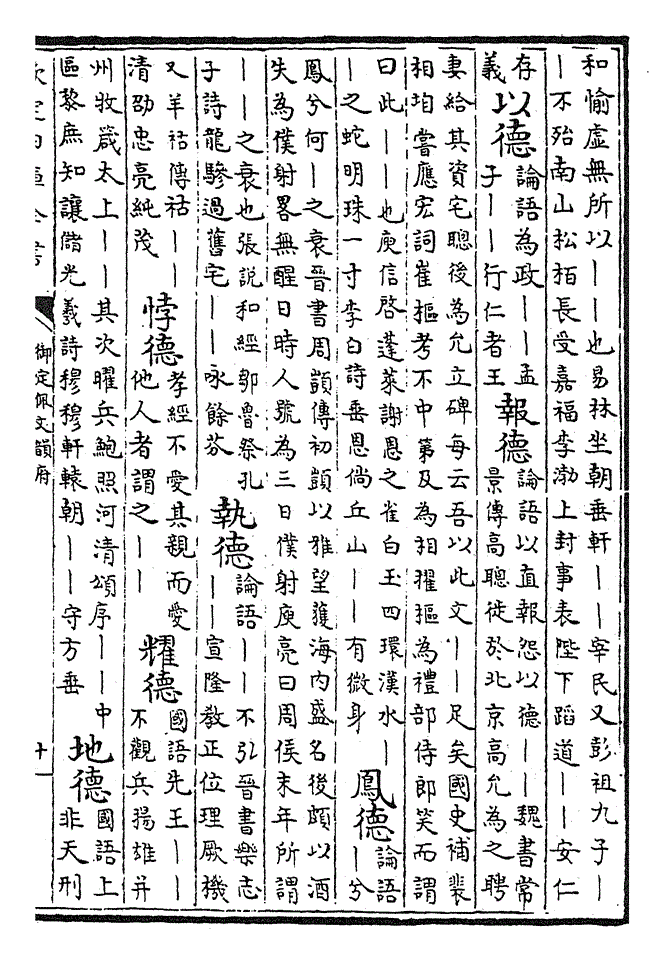 和愉虛無所以丨丨也易林坐朝垂軒丨丨宰民又彭祖九子丨
丨不殆南山松栢長受嘉福李渤上封事表陛下蹈道丨丨安仁
存義
以德
論語為政丨丨孟
子丨丨行仁者王
報德
論語以直報怨以德丨丨魏書常
景傳高聰徙於北京高允為之聘
妻給其資宅聰後為允立碑每云吾以此文丨丨足矣國史補裴
相垍嘗應宏詞崔樞考不中第及為相擢樞為禮部侍郎笑而謂
曰此丨丨也庾信啓蓬萊謝恩之雀白玉四環漢水丨
丨之蛇明珠一寸李白詩垂恩倘丘山丨丨有微身
鳳德
論語
丨兮
鳳兮何丨之衰晉書周顗傳初顗以雅望獲海内盛名後頗以酒
失為僕射畧無醒日時人號為三日僕射庾亮曰周侯末年所謂
丨丨之衰也張説和經鄒魯祭孔
子詩龍驂過舊宅丨丨咏餘芬
執德
論語丨丨不弘晉書樂志
丨丨宣隆敎正位理厥機
又羊祜傳祜丨丨
清劭忠亮純茂
悖德
孝經不愛其親而愛
他人者謂之丨丨
耀德
國語先王丨丨
不觀兵揚雄并
州牧箴太上丨丨其次曜兵鮑照河清頌序丨丨中
區黎庶知讓儲光羲詩穆穆軒轅朝丨丨守方垂
地德
國語上
非天刑
欽定四庫全書
御定佩文韻府